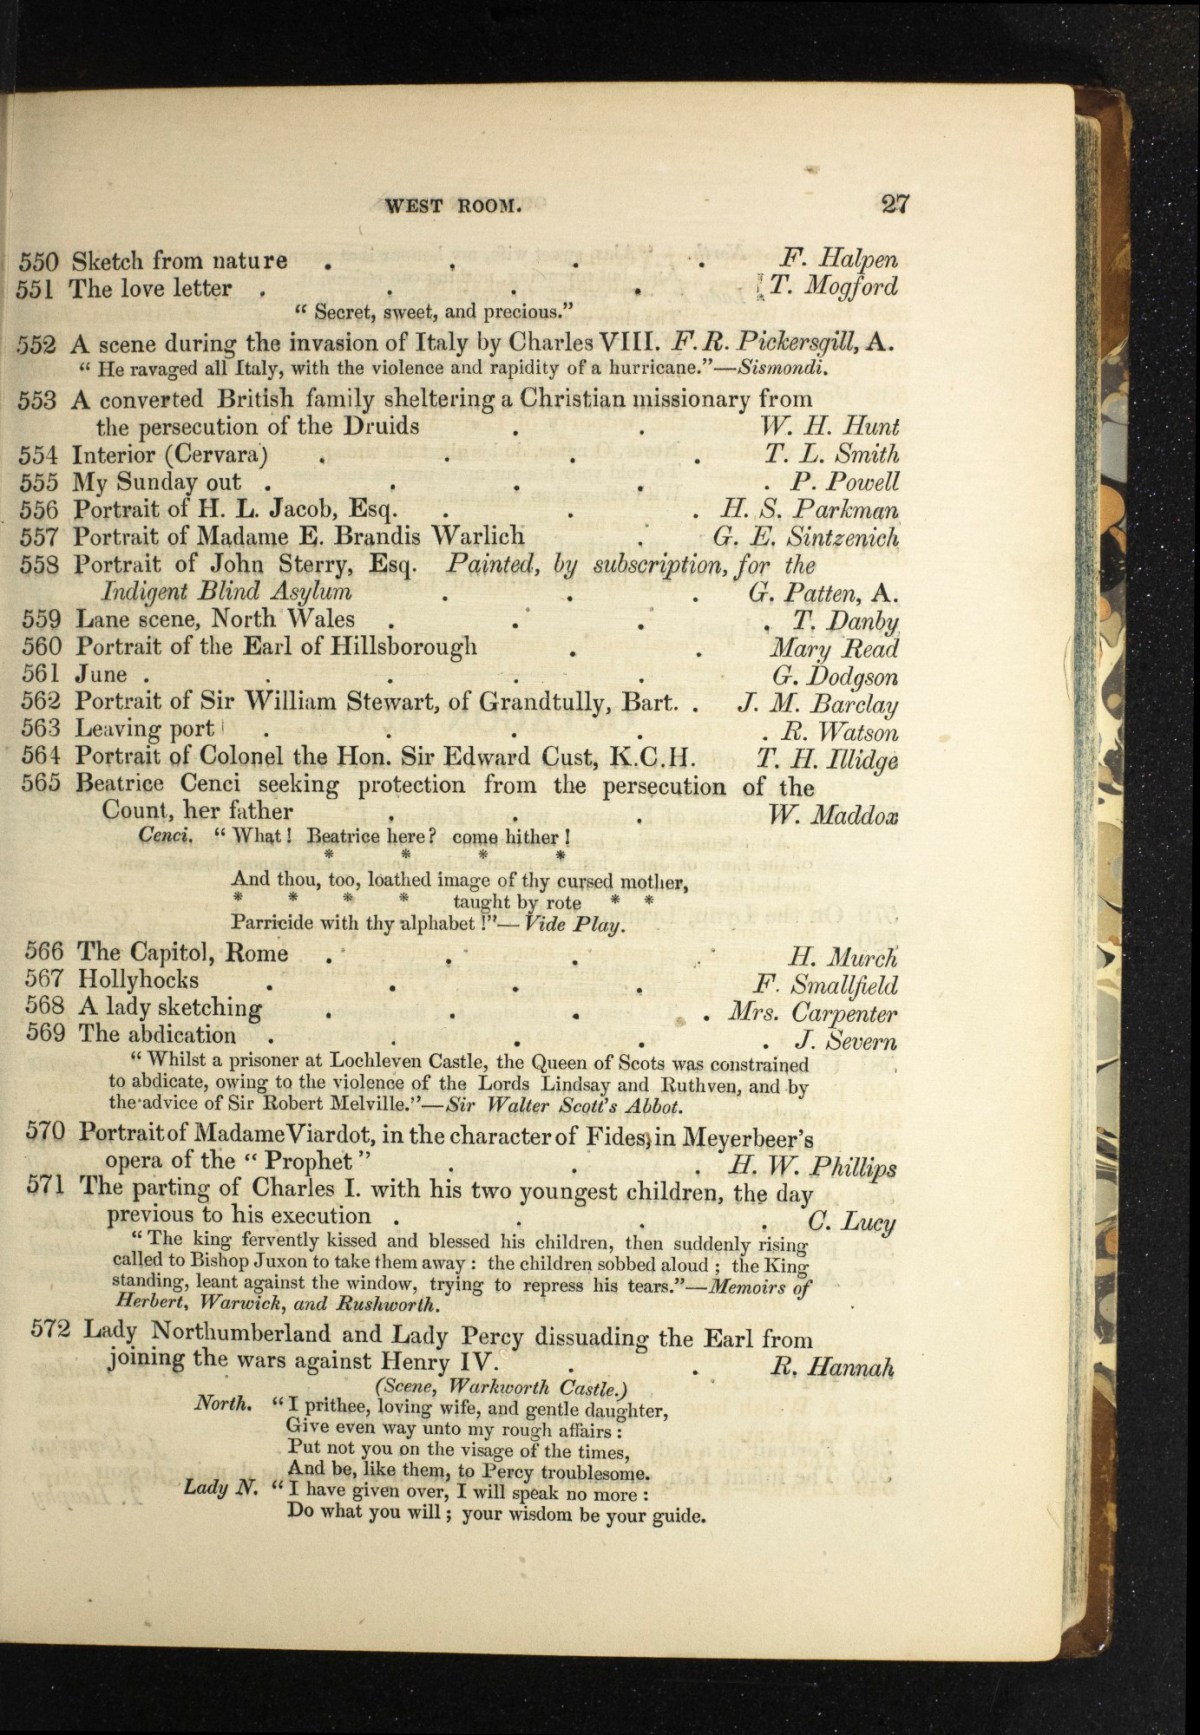 WEST ROOM. 27
550 Sketch from nature . . . . F. Halpen
551 The love letter . . . . T. Mogford
“ Secret, sweet, and precious.”
552 A scene during the invasion of Italy by Charles VIII. F. R. Pickersgill, A.
“ He ravaged all Italy, with the violence and rapidity of a hurricane.”—Sismondi.
553 A converted British family sheltering a Christian missionary from
the persecution of the Druids . . W. H. Hunt
554 Interior (Cervara) . . . . T. L. Smith
555 My Sunday out . . . . . P. Powell
556 Portrait of H. L. Jacob, Esq. . . . H. S. Parkman
557 Portrait of Madame E. Brandis Warlich . G. E. Sintzenich
558 Portrait of John Sterry, Esq. Painted, by subscription, for the
Indigent Blind Asylum . . . G. Patten, A.
559 Lane scene, North Wales . . . . T. Danby
560 Portrait of the Earl of Hillsborough . . Mary Read
561 June . . . . . G. Dodgson
562 Portrait of Sir William Stewart, of Grandtully, Bart. . J. M. Barclay
563 Leaving port . . . . . R. Watson
564 Portrait of Colonel the Hon. Sir Edward Cust, K.C.H. T. H. Illidge
565 Beatrice Cenci seeking protection from the persecution of the
Count, her father . . . W. Maddox
Cenci. “ What! Beatrice here? come hither !
* * * *
And thou, too, loathed image of thy cursed mother,
* * * * taught by rote * *
Parricide with thy alphabet !”— Vide Play.
566 The Capitol, Rome . . . H. Murch
567 Hollyhocks . . . . F. Smallfield
568 A lady sketching . . . . Mrs. Carpenter
569 The abdication . . . . . J. Severn
“ Whilst a prisoner at Lochleven Castle, the Queen of Scots was constrained
to abdicate, owing to the violence of the Lords Lindsay and Ruthven, and by
the advice of Sir Robert Melville.”—Sir Walter Scott's Abbot.
570 Portrait of Madame Viardot, in the character of Fides, in Meyerbeer's
opera of the “ Prophet ” . . . H. W. Phillips
571 The parting of Charles I. with his two youngest children, the day
previous to his execution . . . . C. Lucy
“ The king fervently kissed and blessed his children, then suddenly rising
called to Bishop Juxon to take them away : the children sobbed aloud ; the King
standing, leant against the window, trying to repress his tears.”—Memoirs of
Herbert, Warwick, and Rushworth.
572 Lady Northumberland and Lady Percy dissuading the Earl from
joining the wars against Henry IV. . . R. Hannah
(Scene, Warkworth Castle.)
North. “ I prithee, loving wife, and gentle daughter,
Give even way unto my rough affairs :
Put not you on the visage of the times,
And be, like them, to Percy troublesome.
Lady N. “ I have given over, I will speak no more :
Do what you will ; your wisdom be your guide.